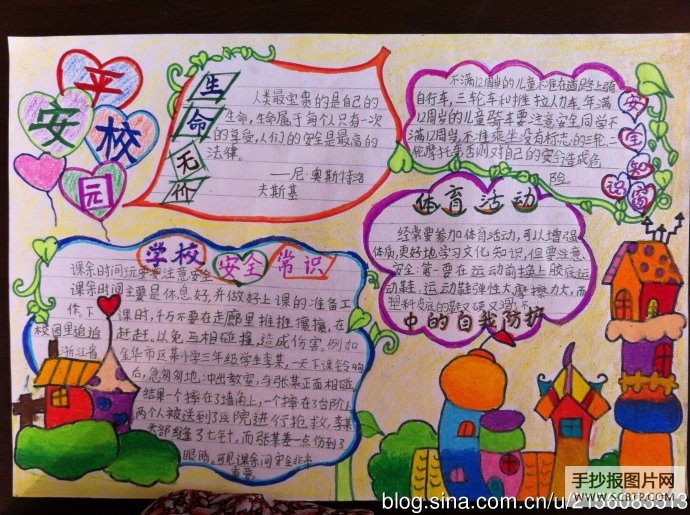 平
安
校
园
生
命
无
价
人类最宝贵的是自己的
生命,生命属于每个人只有一次
的享受,人们的安全是最高的
法律。
——尼·奥斯特洛
夫斯基
安全知识窗
不满12周岁的儿童不准在道路上骑
自行车,三轮车和推拉人力车,年满
12周岁的儿童骑车要注意安全同学不
满12周岁,不准乘坐没有标志的三轮,二
轮摩托车否则对自己的安全造成危
险。
体育活动
经常要参加体育活动,可以增强
体质,更好地学习文化知识,但要注意
安全第一要在运动前换上胶底运
动鞋,运动鞋弹性大摩擦力大,而
塑料皮底的鞋又硬又滑
中的自我防护
学校安全常识
课余时间玩耍要注意安全
课余时间主要是休息好,并做好上课的准备工
作,下课时,千万不要在走廊里推推攘攘,在
校园里追追赶赶。以免互相碰撞,造成伤害,例如
浙江省金华市区某小学三年级学生李某,一天下课铃响
后,急匆匆地冲出教室,与张某正面相碰
结果一个摔在了墙角上,一个摔在了台阶上
两个人被送到了医院进行抢救,李某
头部缝了七针,而张某差一点伤到了
眼睛,可见课余间安全非常
重要。
手抄报图片网
WWW.SCBTP.COM
blog.sina.com.cn/u/2156083313